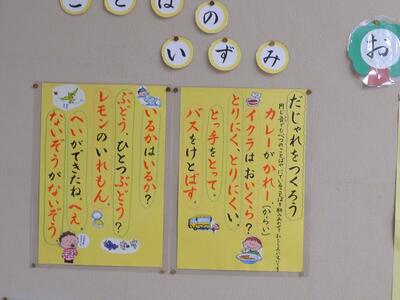 ことばの
いずみ
お
だじゃれをつくろう
カレーがかれー(からい)
イクラはおいくら?
とりにく、とりにくい。
とっ手をとって、
バスをけとばす。
いるかはいるか?
ぶどう、ひとつぶどう?
レモンのいれもん。
へいができたね。へえ。
ないぞうがないぞう